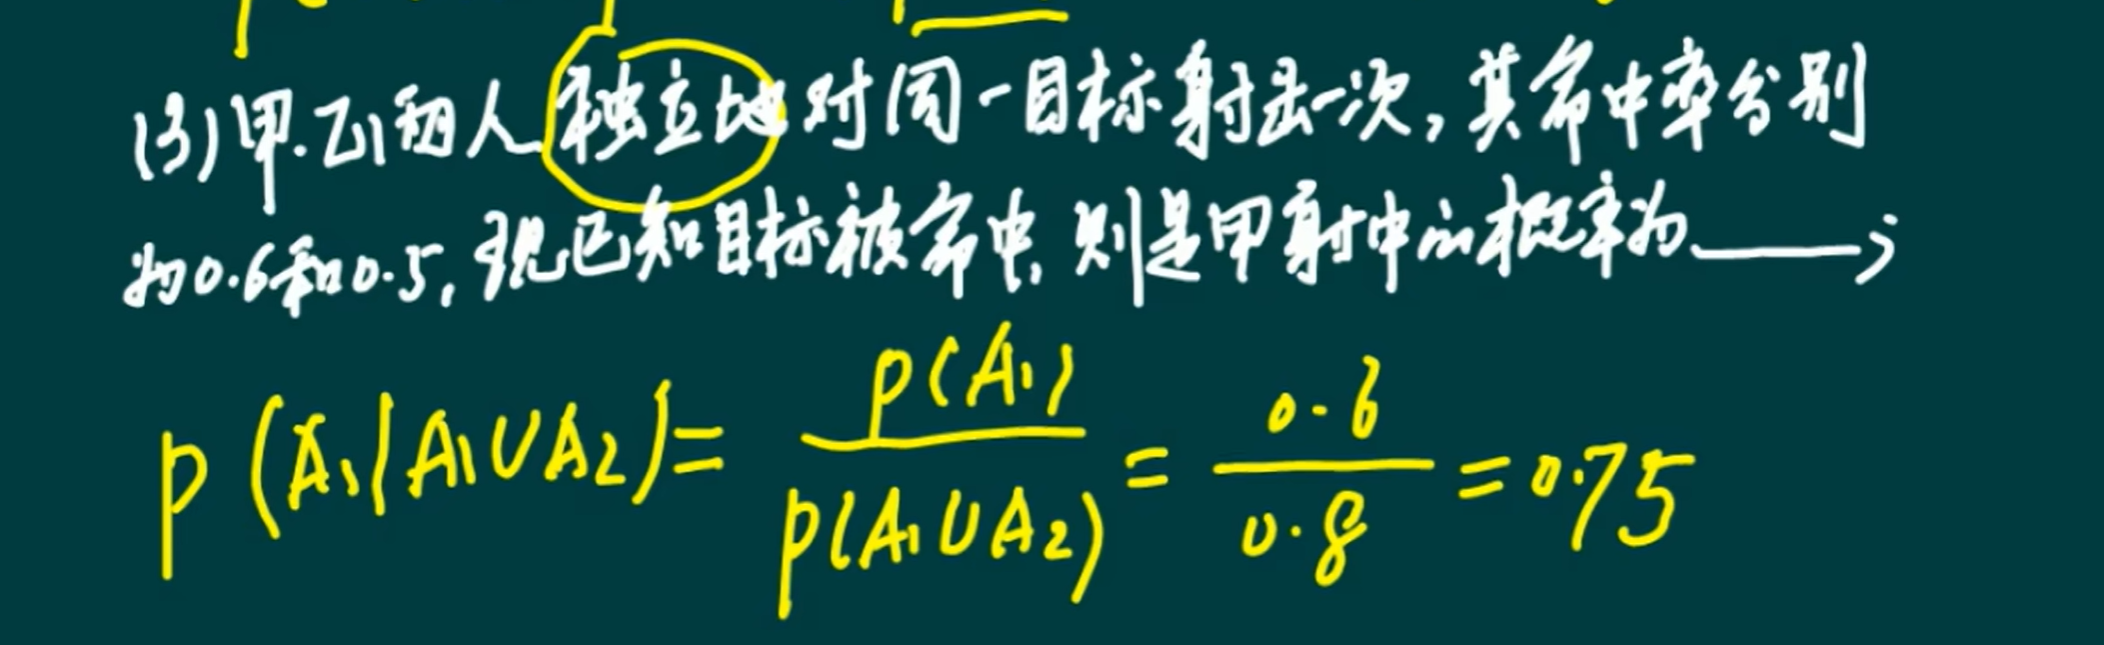 (3)甲.乙两人独立地对同一目标射击一次,其命中率分别
为0.6和0.5,现已知目标被命中,则是甲射中的概率为____;
P(A₁|A₁∪A₂)= P(A₁)/P(A₁∪A₂) = 0.6/0.8 =0.75